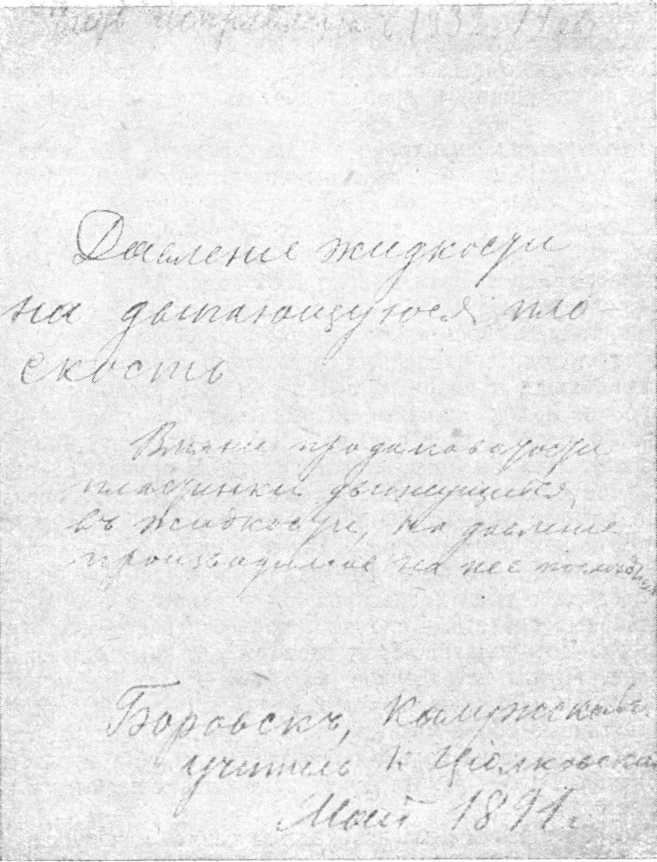 Давление жидкости
на двигающуюся пло-
скость
продолговатости
пластинки движущейся
въ жидкости, на давление
производимое на нее
Боровскъ, Калужск. губ.
учитель К Циолковскій
Май 1891 г.